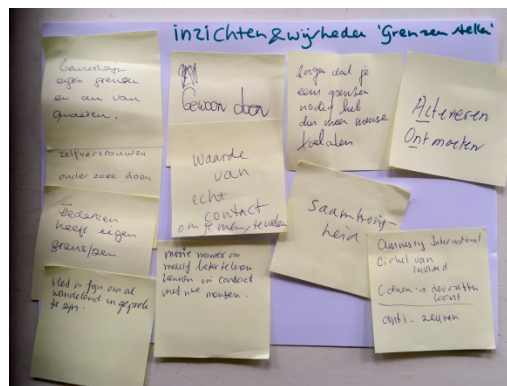 inzichten & wijsheden 'Grenzen stellen'
eigen grenzen
en die van
anderen.
zelfvertrouwen
onderzoek doen
Iedereen
heeft eigen
grenzen
Het is fijn om al
wandelend in gesprek
te zijn.
Gewoon doen
waarde
van
echt
contact
om je men, te voelen
mooie manier om
mezelf beter te leren
kennen in contact
met nwe mensen.
zorgen dat je
eens grenzen
nodig heb
dus meer
toelaten
Altereren
Ontmoeten
Saamhorig-
heid
Amnesty International
Cirkel van
invloed
doorzetten
loont
anti-zeuren